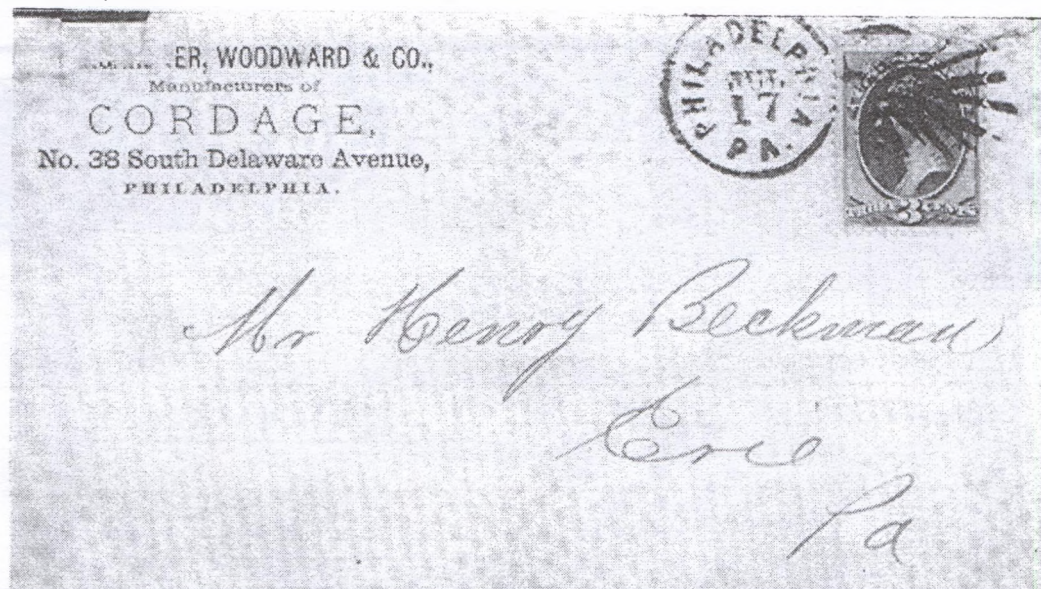 ER, WOODWARD & CO.,
Manufacturers of
CORDAGE,
No. 38 South Delaware Avenue,
PHILADELPHIA.
PHILADELPHIA
17
PA.
THREE 3 CENTS
Mr Henry Beckman
Erie
Pa